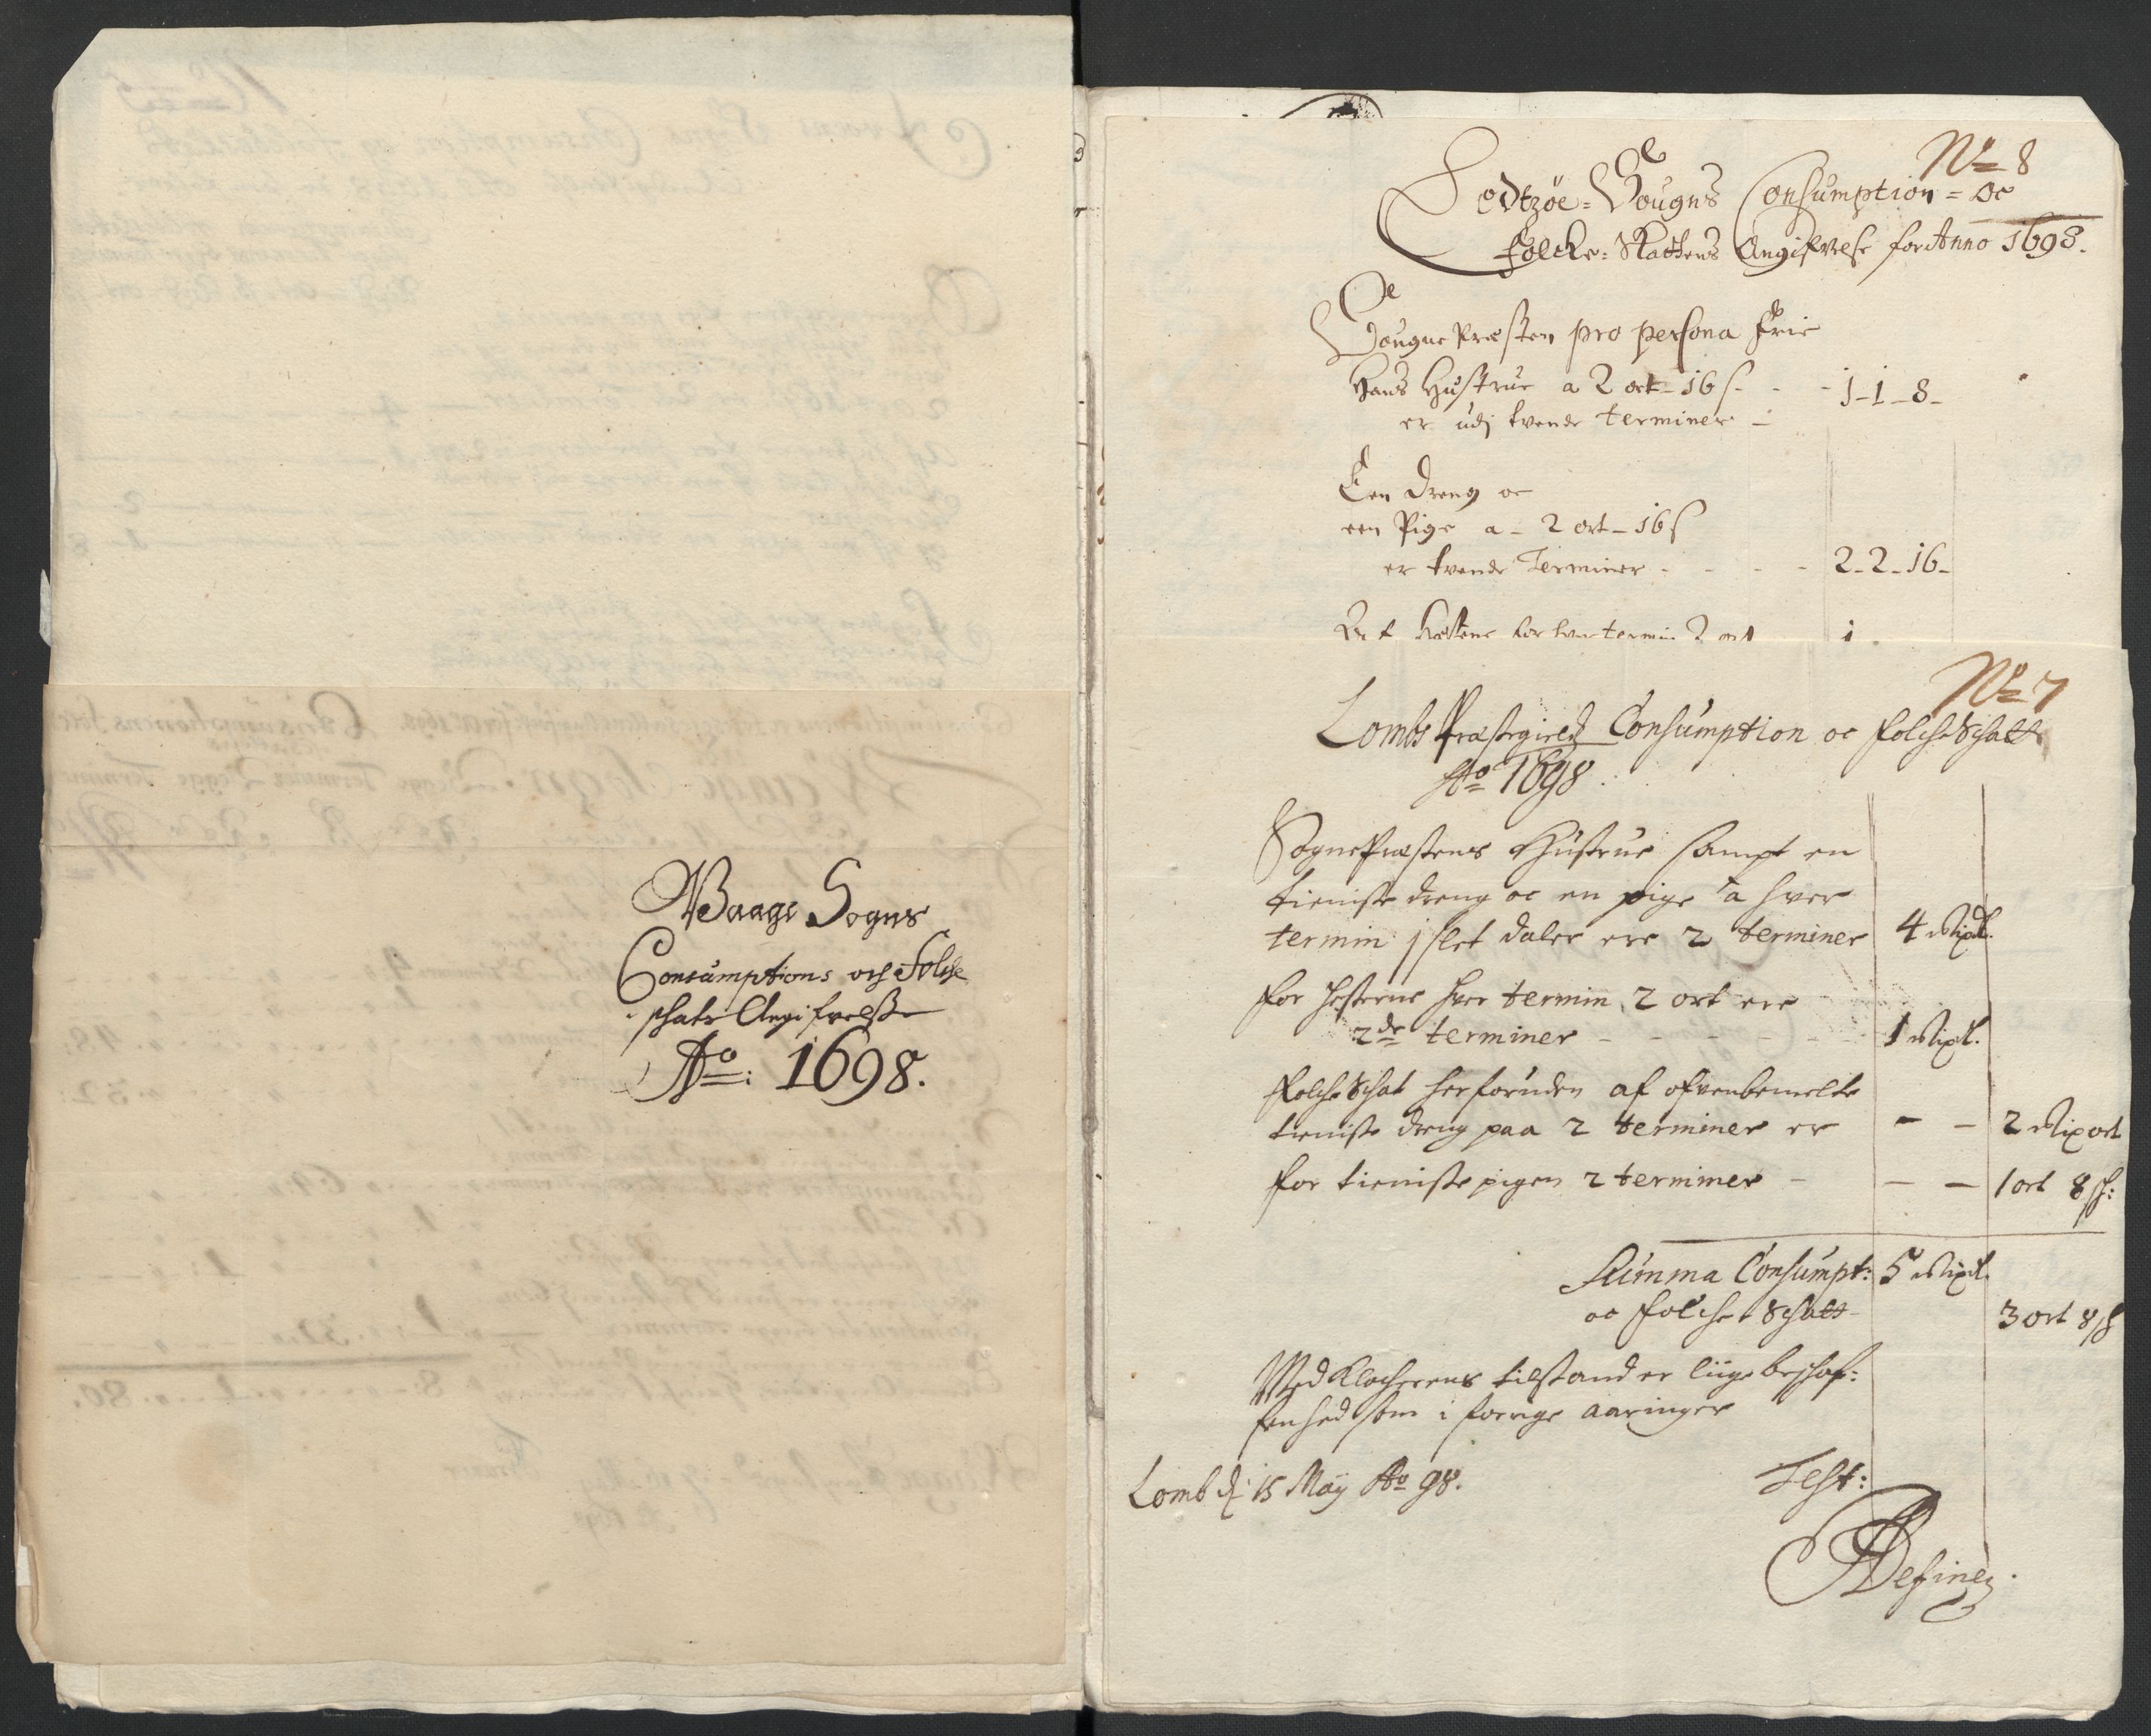 Waage Sogns
Consumptions och Folche
schats Angifvelße
Ao: 1698.
No 8
Sougns Consumption = Oc
Folcke = Skattens Angifvelse for Anno 1698.
Sougne Præsten pro persona frie
Hans Hustrue a 2 ort = 16 s - - 1 - 1 - 8 -
er udj tvende terminer -
Een Dreng oc
een Pige a - 2 ort - 16 s
er tvende Terminer - - - - 2 - 2 - 16 -
hestene for hver termin 2 ort 1
No 7
Lombs Præstegield Consumption oc folche Schatt
Ao 1698
Sogne Præstens Hustrue sampt en
tieniste dreng oc en pige a hver
termin 1 slet daler ere 2 terminer 4 Rixd.
for hesterne hver termin 2 ort ere
2de terminer - - - - - 1 Rixd.
Folche Schat herforuden af ofvenbemelte
tieniste dreng paa 2 terminer er - - 2 Rix ort
for tieniste pigen 2 terminer - - - 1 ort 8 sh:
Summa Consumpt: 5 Rixd.
oc folche Schatt 3 ort 8 sh
Med Klocherens tilstand er liige beschaf:
fenhed som i forrige aaringer
Lomb d. 15 Maij Ao 98.
Test: